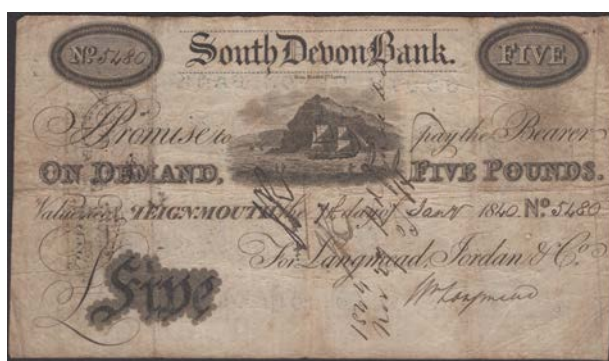 No. 5480 South Devon Bank. FIVE
I Promise to pay the Bearer
ON DEMAND, FIVE POUNDS.
Value recd. TEIGNMOUTH the 7th day of Jany 1840 No. 5480
For Langmead, Jordan & Co.
£ Five
Wm Langmead
1844
Nov